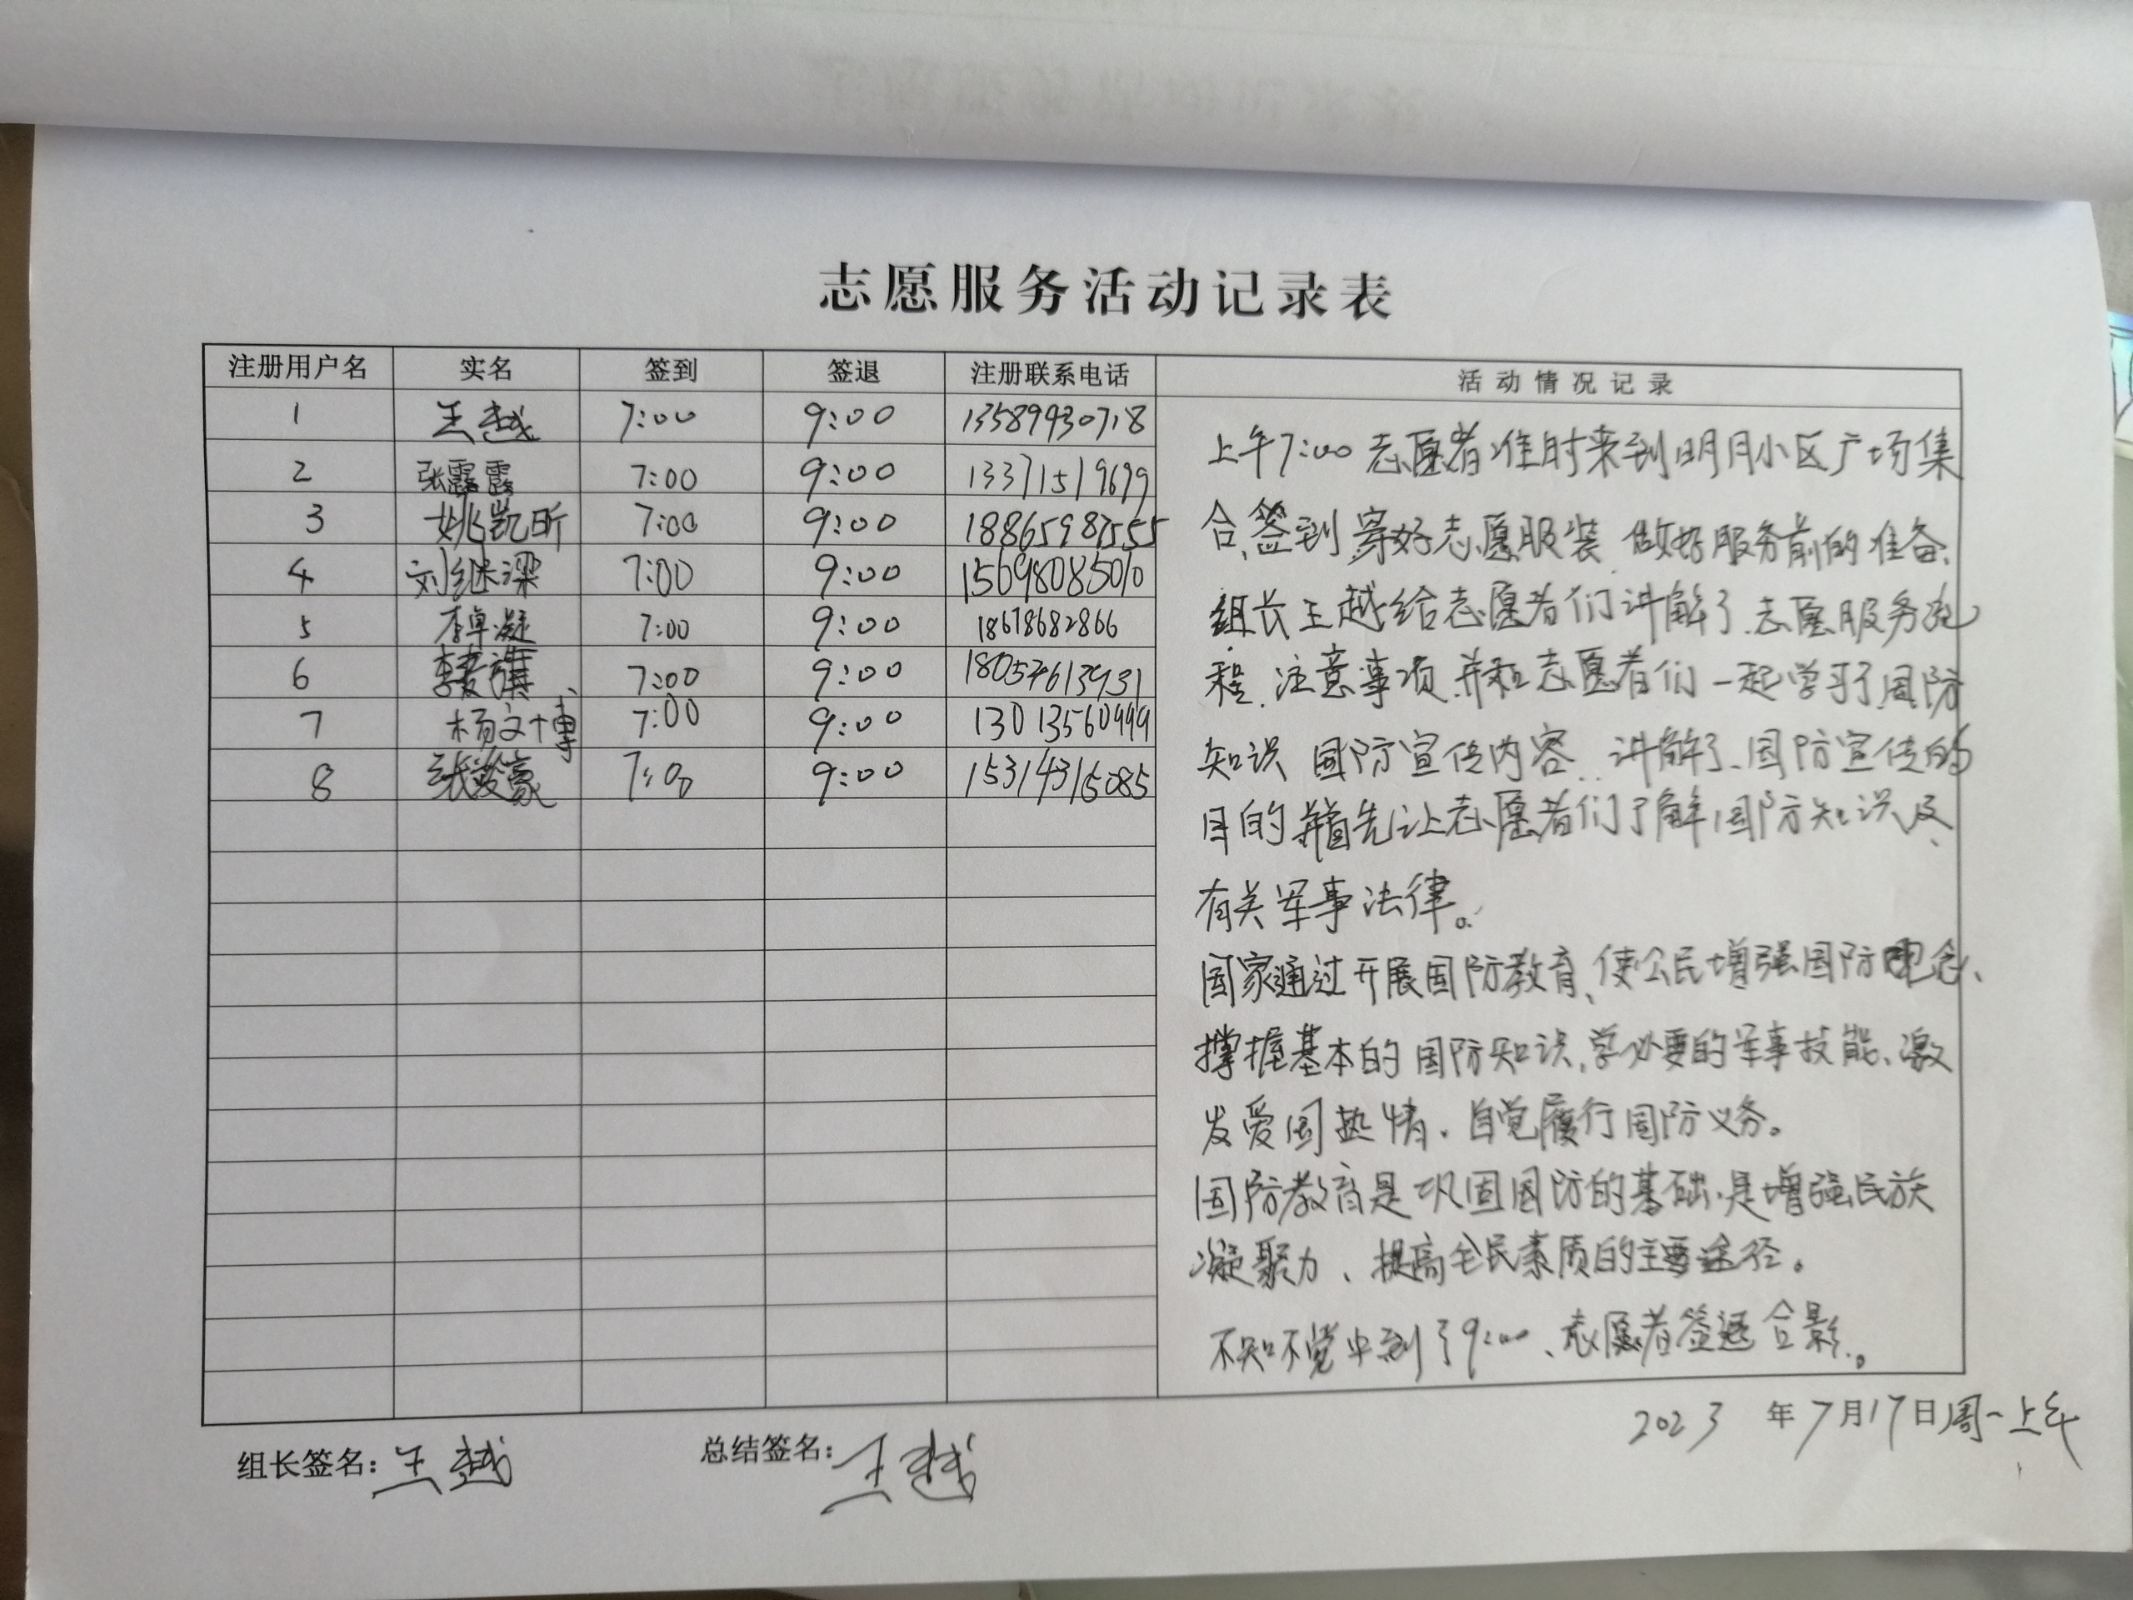 志愿服务活动记录表
注册用户名 实名 签到 签退 注册联系电话 活动情况记录
1 王越 7:00 9:00 13589930718
2 张露露 7:00 9:00 13371519679
3 姚凯昕 7:00 9:00 18865987555
4 刘继梁 7:00 9:00 15698085010
5 李卓凝 7:00 9:00 18678682866
6 7:00 9:00 18054613931
7 杨文博 7:00 9:00 13013560999
8 张浚豪 7:00 9:00 15314316085
上午7:00志愿者准时来到明月小区广场集
合、签到、穿好志愿服装、做好服务前的准备、
组长王越给志愿者们讲解了、志愿服务流
程、注意事项、并和志愿者们一起学习了国防
知识 国防宣传内容、讲解了、国防宣传的
目的 并首先让志愿者们了解国防知识及、
有关军事法律。
国家通过开展国防教育、使公民增强国防观念、
掌握基本的国防知识、学必要的军事技能、激
发爱国热情、自觉履行国防义务。
国防教育是巩固国防的基础、是增强民族
凝聚力、提高全民素质的主要途径。
不知不觉中到了9:00、志愿者签退合影。
2023年7月17日周一上午
组长签名:王越 总结签名:王越